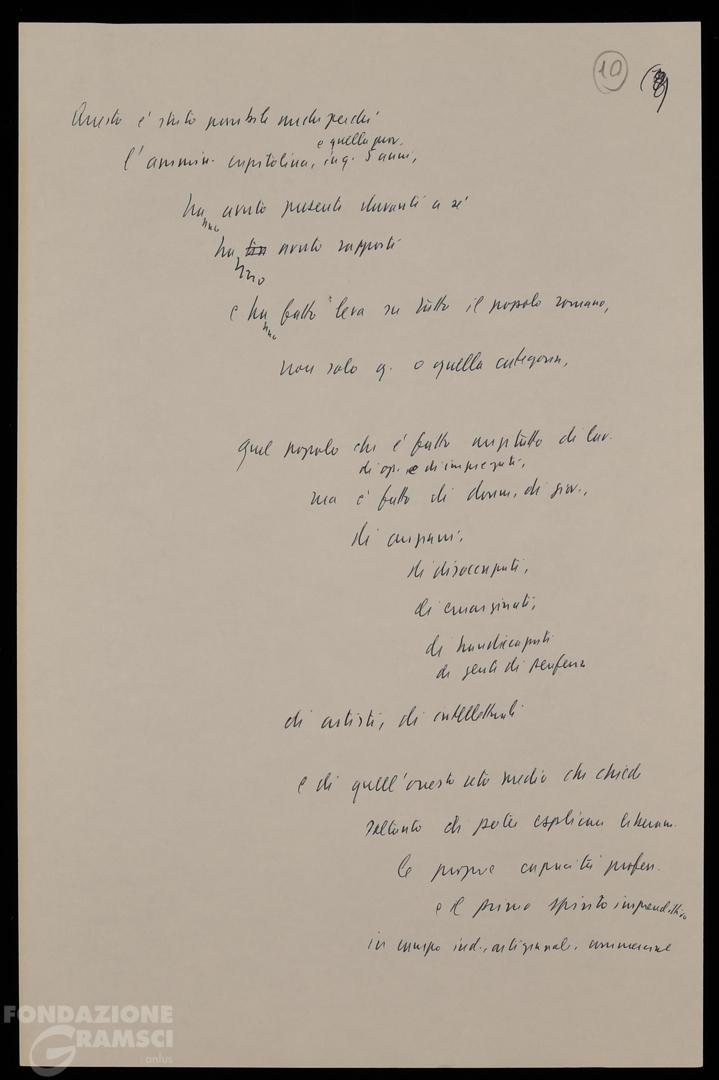 10
Questo è stato possibile anche perché
e quella prov.
l'ammin. capitolina, in q. 5 anni,
ha avuto presente davanti a sé
hno
ha avuto rapporti
hno
e ha fatto leva su tutto il popolo romano,
hno
non solo q. o quella categoria,
quel popolo che è fatto anzitutto di lav.
di op. e di impiegati,
ma è fatto di donne, di giov.,
di anziani,
di disoccupati,
di emarginati,
di handicappati
di gente di periferia
di artisti, di intellettuali
e di quell'onesto ceto medio che chiede
soltanto di poter esplicare liberam.
le proprie capacità profess.
e il spirito imprenditivo
in campo ind., artigianale, commerciale
FONDAZIONE
GRAMSCI
onlus